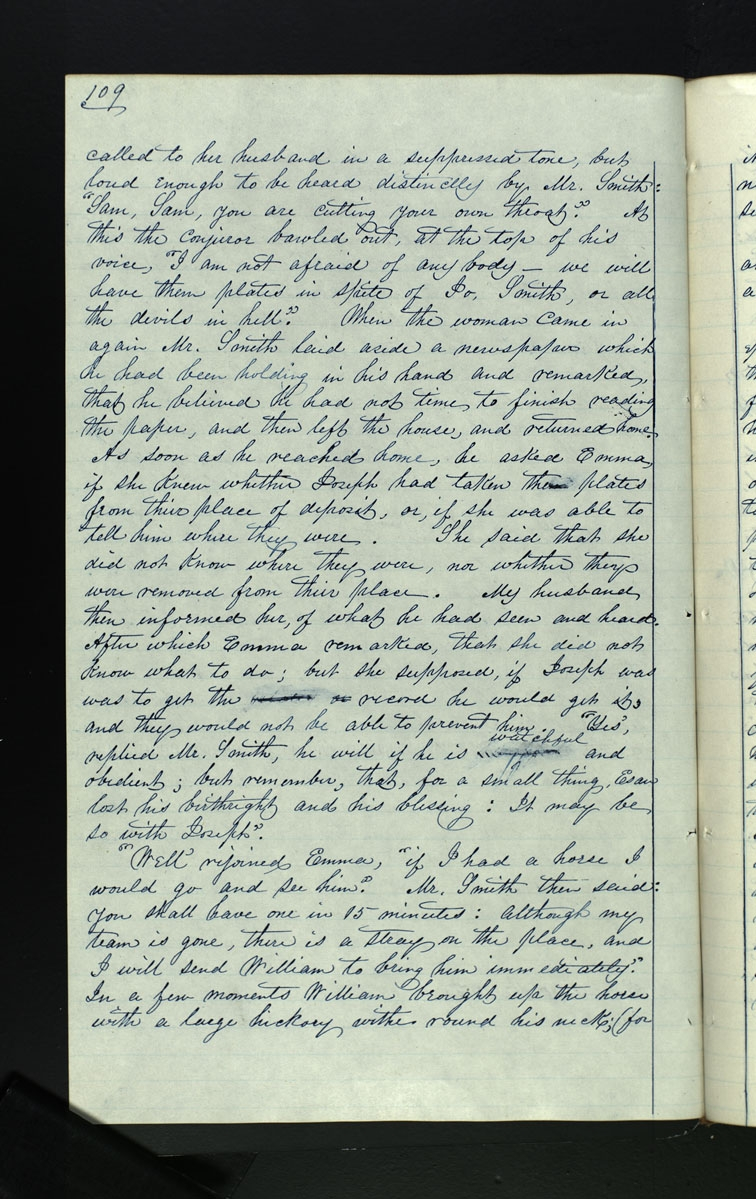 109
called to her husband in a suppressed tone, but
loud enough to be heard distinctly by Mr. Smith:
"Sam, Sam, you are cutting your own throat." At
this the conjuror bawled out, at the top of his
voice, "I am not afraid of any body — we will
have them plates in spite of Jo. Smith, or all
the devils in hell". When the woman came in
again Mr. Smith laid aside a newspaper which
he had been holding in his hand and remarked,
that he believed he had not time to finish reading
the paper, and then left the house, and returned home.
As soon as he reached home, he asked Emma,
if she knew whether Joseph had taken the plates
from their place of deposit, or, if she was able to
tell him where they were. She said that she
did not know where they were, nor whether they
were removed from their place. My husband
then informed her, of what he had seen and heard.
After which Emma remarked, that she did not
know what to do; but she supposed, if Joseph was
was to get the record he would get it,
and they would not be able to prevent him. "Yes",
replied Mr. Smith, he will if he is watchful and
obedient; but remember, that, for a small thing, Esau
lost his birthright and his blessing: It may be
so with Joseph".
"Well" rejoined Emma, "if I had a horse I
would go and see him". Mr. Smith then said:
you shall have one in 15 minutes: although my
team is gone, there is a stray on the place, and
I will send William to bring him immediately."
In a few moments William brought up the horse
with a large hickory withe round his neck; (for